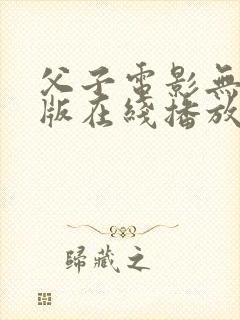 父子電影無
版在綫播放
歸藏之